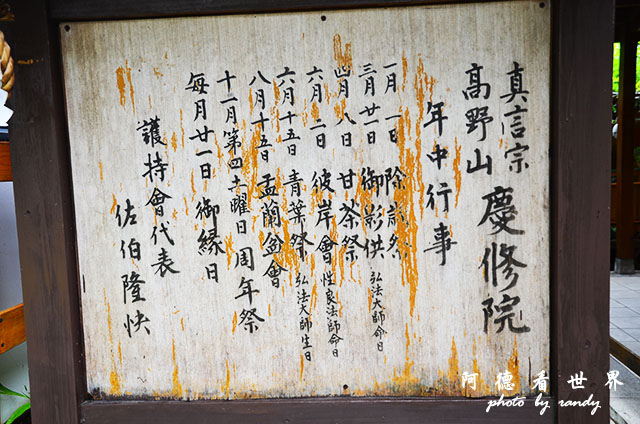 真言宗
高野山 慶修院
年中行事
一月一日 除歲祭
三月廿一日 御影供 弘法大師命日
四月八日 甘茶祭
六月二日 彼岸會 性良法師命日
六月十五日 青葉祭 弘法大師生日
八月十五日 盂蘭盆會
十一月第四土曜日 周年祭
每月廿一日 御縁日
護持會代表
佐伯隆快
阿德看世界
photo by randy